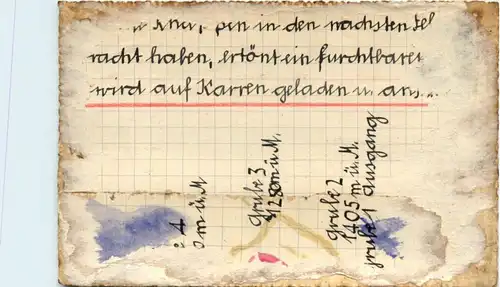 in den nächsten
racht haben, ertönt ein furchtbarer
wird auf Karren geladen u. ans
4
m ü. M
Grube 3
1280 m ü. M.
Grube 2
1405 m ü. M.
Grube 1 Ausgang